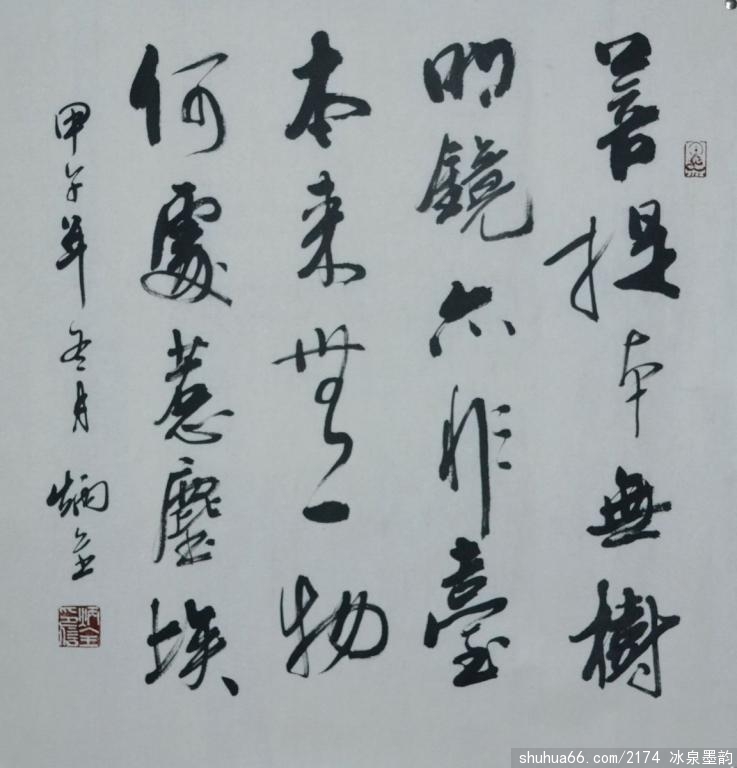 菩提本無樹
明鏡亦非臺
本来無一物
何處惹塵埃
甲午年冬月
炳金
shuhua66.com/2174 冰泉墨韵